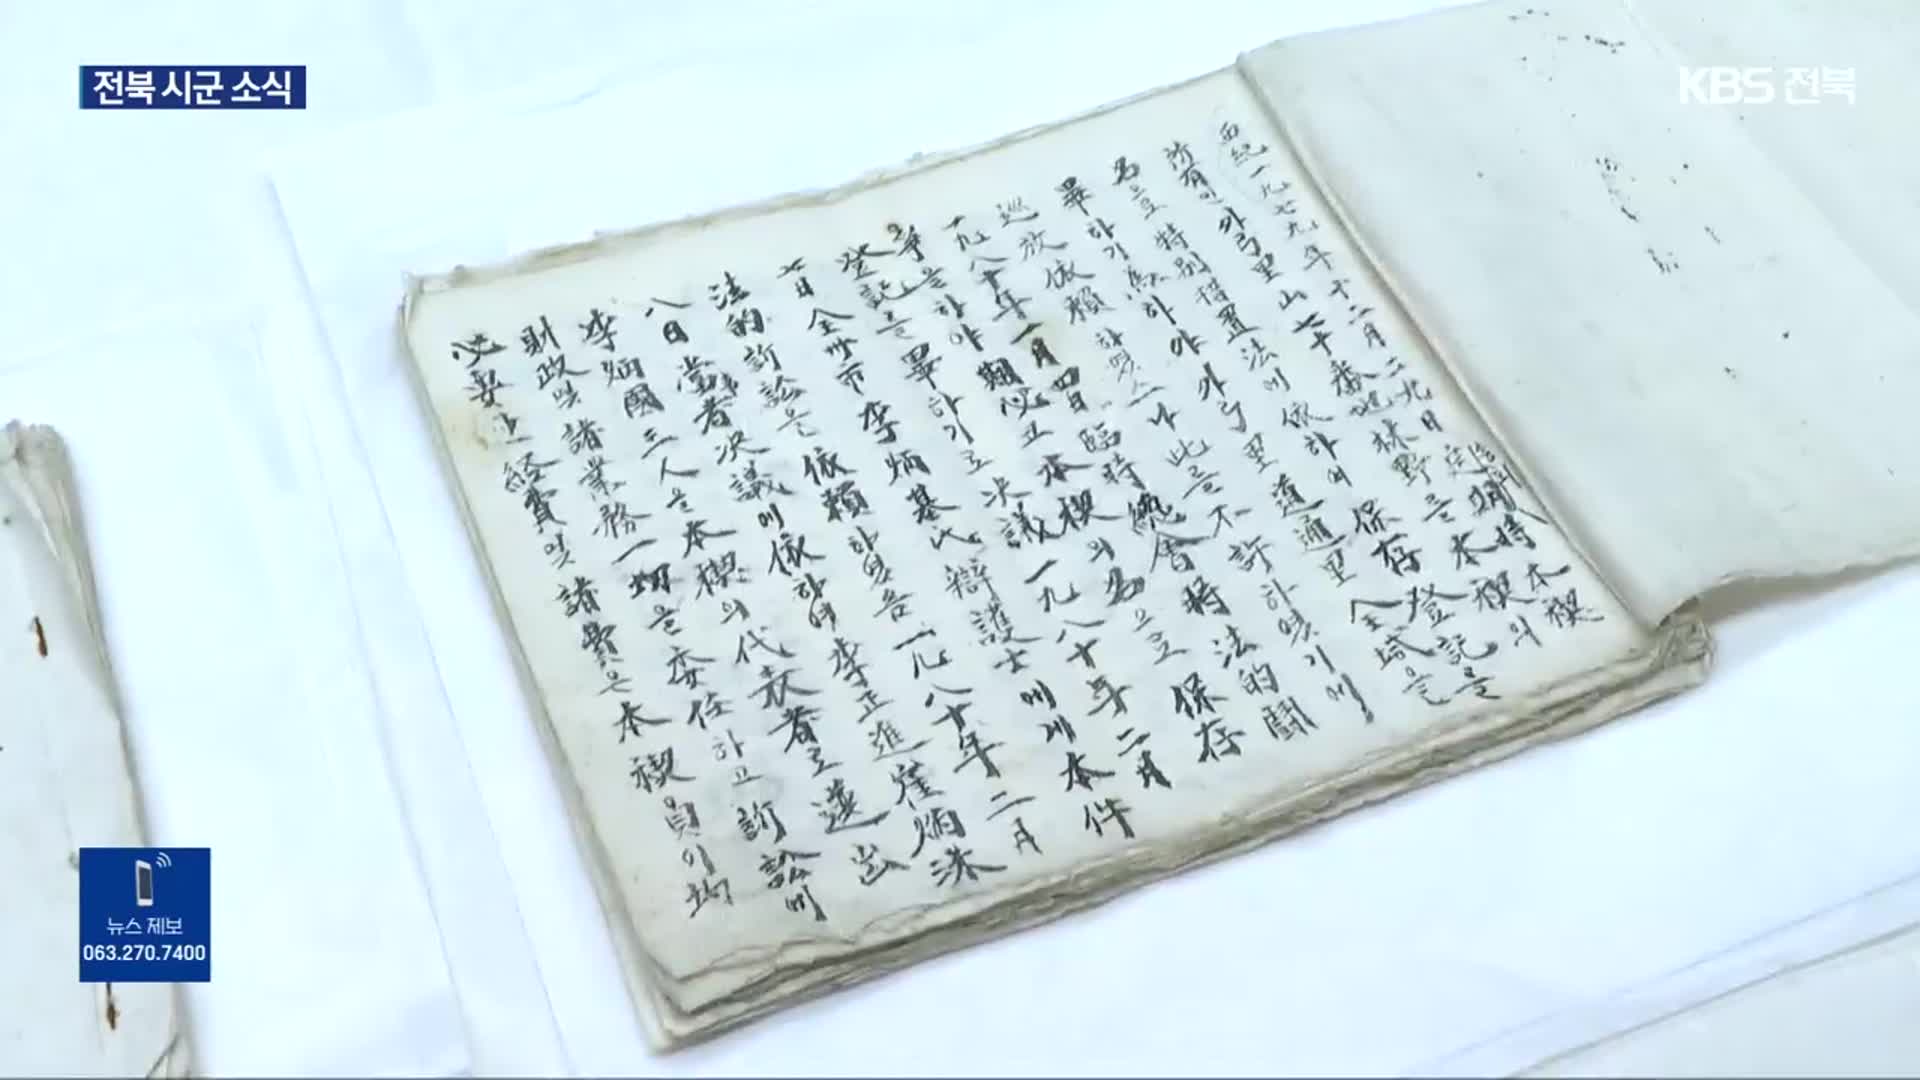 전북 시군 소식
KBS 전북
西紀一九七九年十二月二九日 時 本禊의
所有인 外弓里山七十番地林野를 本禊
名으로 特別措置法에 依하여 保存登記를
畢하기 爲하야 外弓里 道通里 全域을
巡放依賴하였으나 此를 不許하였기에
一九八十年一月四日 臨時總會時 法的鬪
爭을 하야 期必코 本禊의 名으로 保存
登記를 畢하기로 決議 一九八十年二月
七日 全州市 李炳基氏 辯護士에게 本件
法的訴訟을 依賴하였음 一九八十年二月
八日 當 者決議에 依하여 李正進 崔炳洙
李炳國 三人을 本禊의 代表者로 選出
財政및 諸業務一切을 委任하고 訴訟에
必要 経費및 諸費은 本禊員이 均
뉴스 제보
063.270.7400